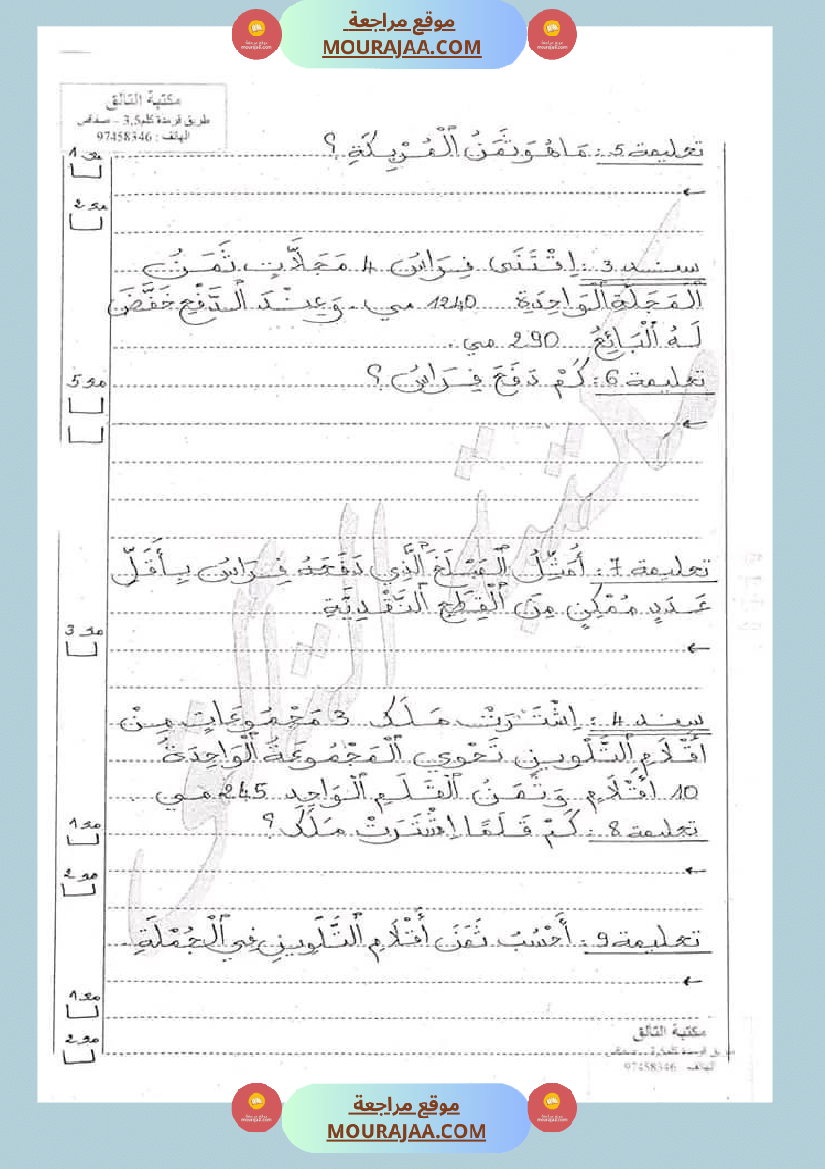 موقع مراجعة
MOURAJAA.COM
مكتبة التالق
طريق قرمدة كلم3,5 - صفاقس
الهاتف : 97458346
تعليمة 5 : مَا هُوَ ثَمَنُ الْمُرَبِّكَةِ ؟
مع 1
مع 2
سند 3 : اِقْتَنَى فِرَاسُ 4 مَجَلَّاتٍ ثَمَنُ
الْمَجَلَّةِ الْوَاحِدَةِ 1240 مي. وَعِنْدَ الدَّفْعِ خَفَّضَ
لَهُ الْبَائِعُ 290 مي.
تعليمة 6 : كَمْ دَفَعَ فِرَاسُ ؟
مع 5
تعليمة 7 : أُمَثِّلُ الْمَبْلَغَ الَّذِي دَفَعَهُ فِرَاسُ بِأَقَلِّ
عَدَدٍ مُمْكِنٍ مِنَ الْقِطَعِ النَّقْدِيَّةِ
مع 3
سند 4 : اِشْتَرَتْ مَلَك 3 مَجْمُوعَاتٍ مِنْ
أَقْلَامِ التَّلْوِينِ تَحْوِي الْمَجْمُوعَةُ الْوَاحِدَةُ
10 أَقْلَامٍ وَثَمَنُ الْقَلَمِ الْوَاحِدِ 245 مي
تعليمة 8 : كَمْ قَلَمًا اِشْتَرَتْ مَلَكُ ؟
مع 1
مع 2
تعليمة 9 : أَحْسُبُ ثَمَنَ أَقْلَامِ التَّلْوِينِ فِي الْجُمْلَةِ
مع 1
مع 2
مكتبة التالق
الهاتف : 97458346
موقع مراجعة
MOURAJAA.COM